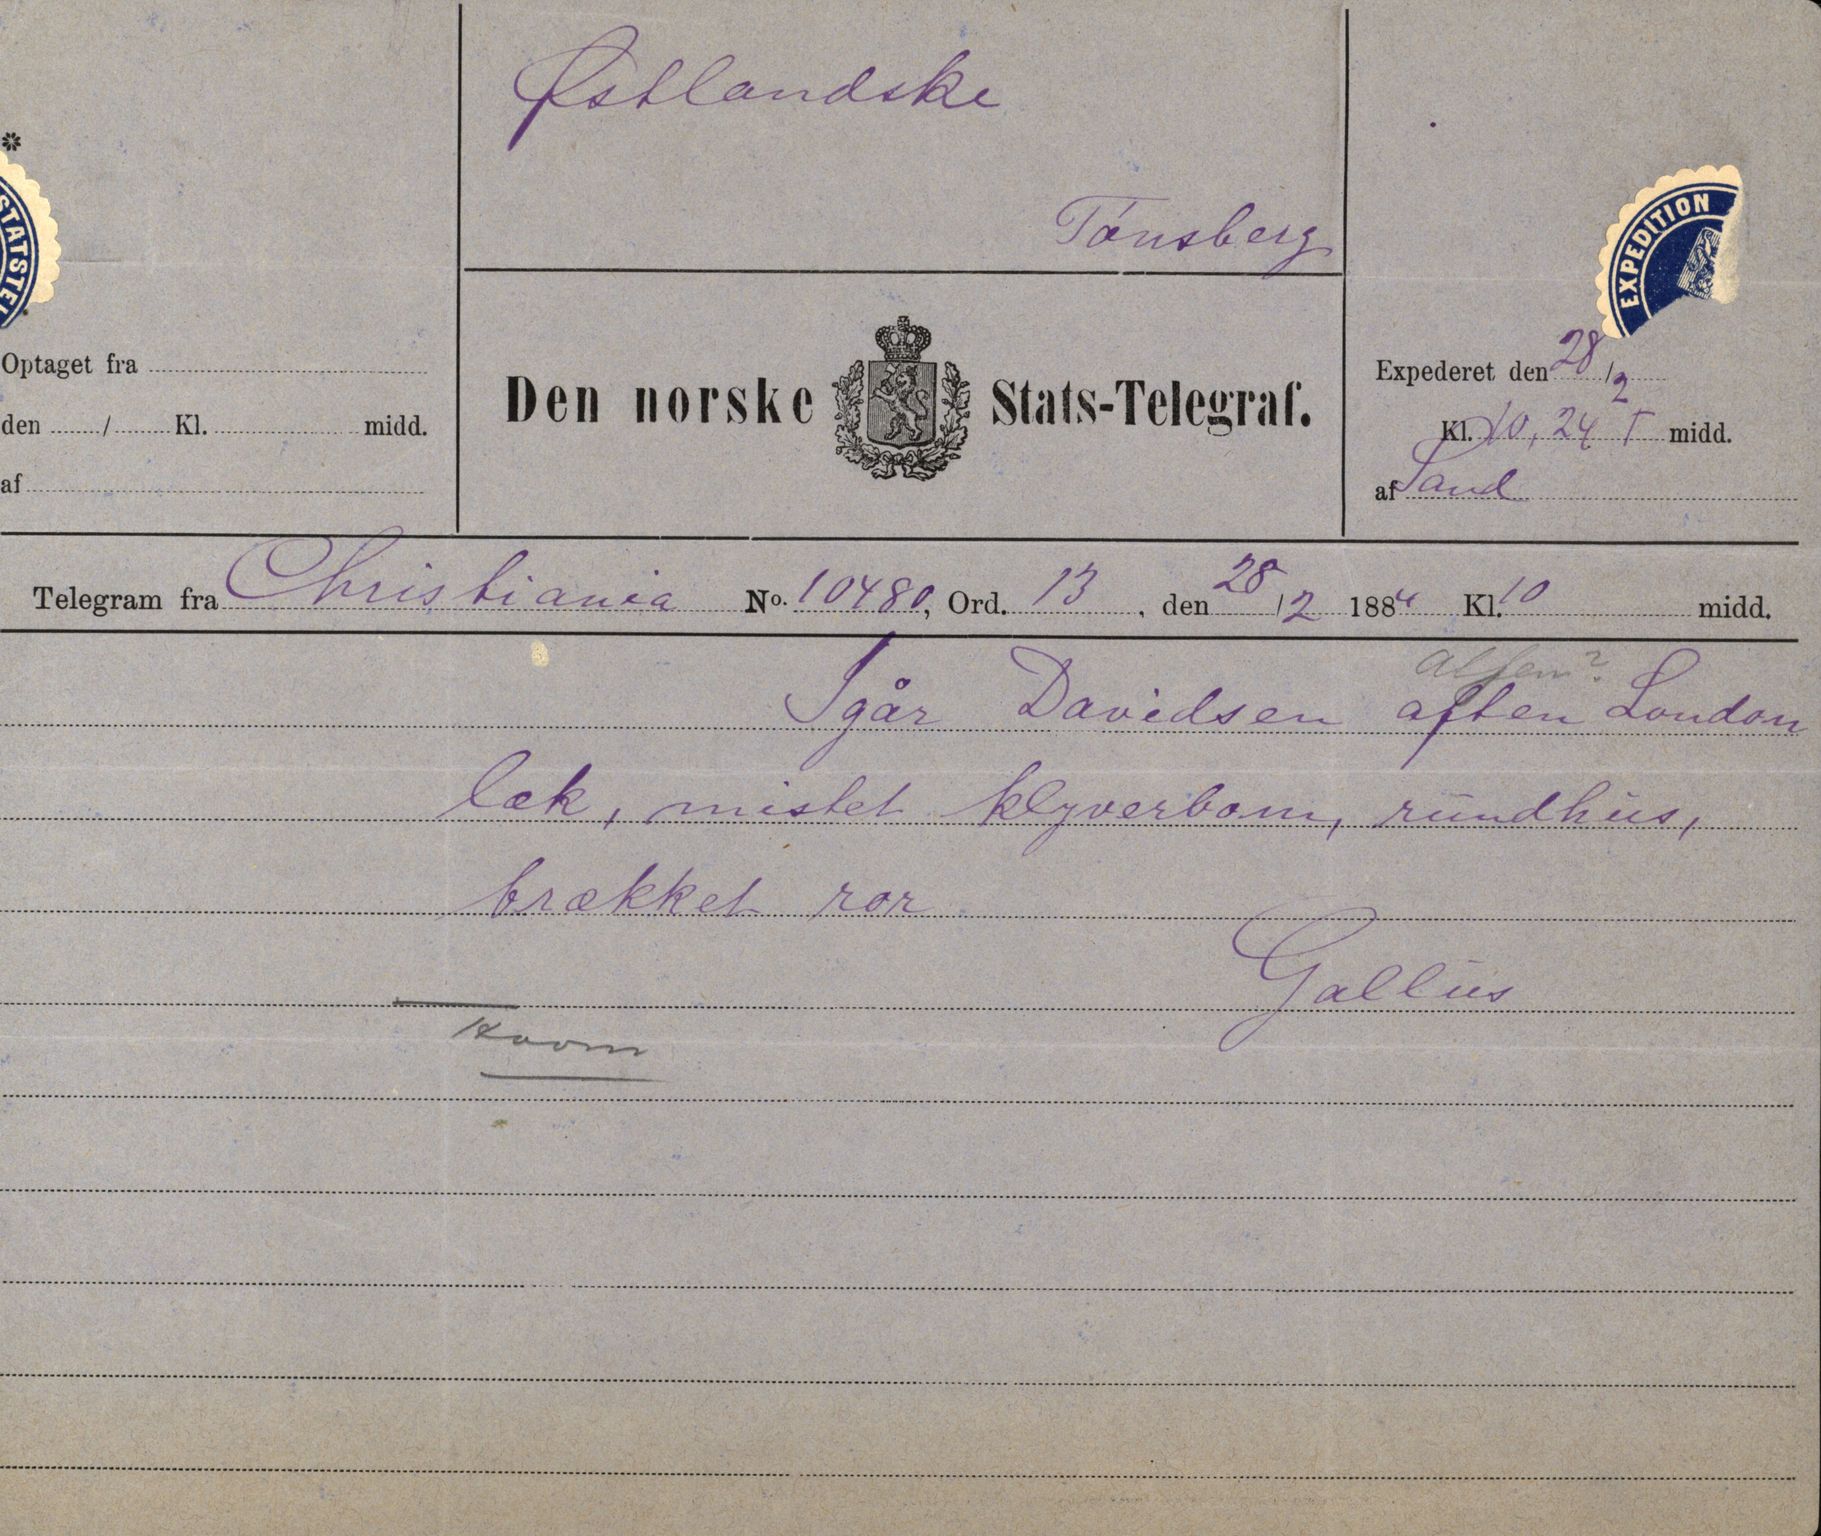 Østlandske
*
Tønsberg
STATSTEL
EXPEDITION
Optaget fra
den / Kl. midd.
af
Den norske Stats-Telegraf.
Expederet den 28/2
Kl. 10,24 F midd.
af Sand
Telegram fra Christiania No. 10480, Ord. 13, den 28/2 1884 Kl. 10 midd.
alfen?
Igår Davidsen aften London
læk, mistet klyverbom, rundhus,
brækket ror
Gallus